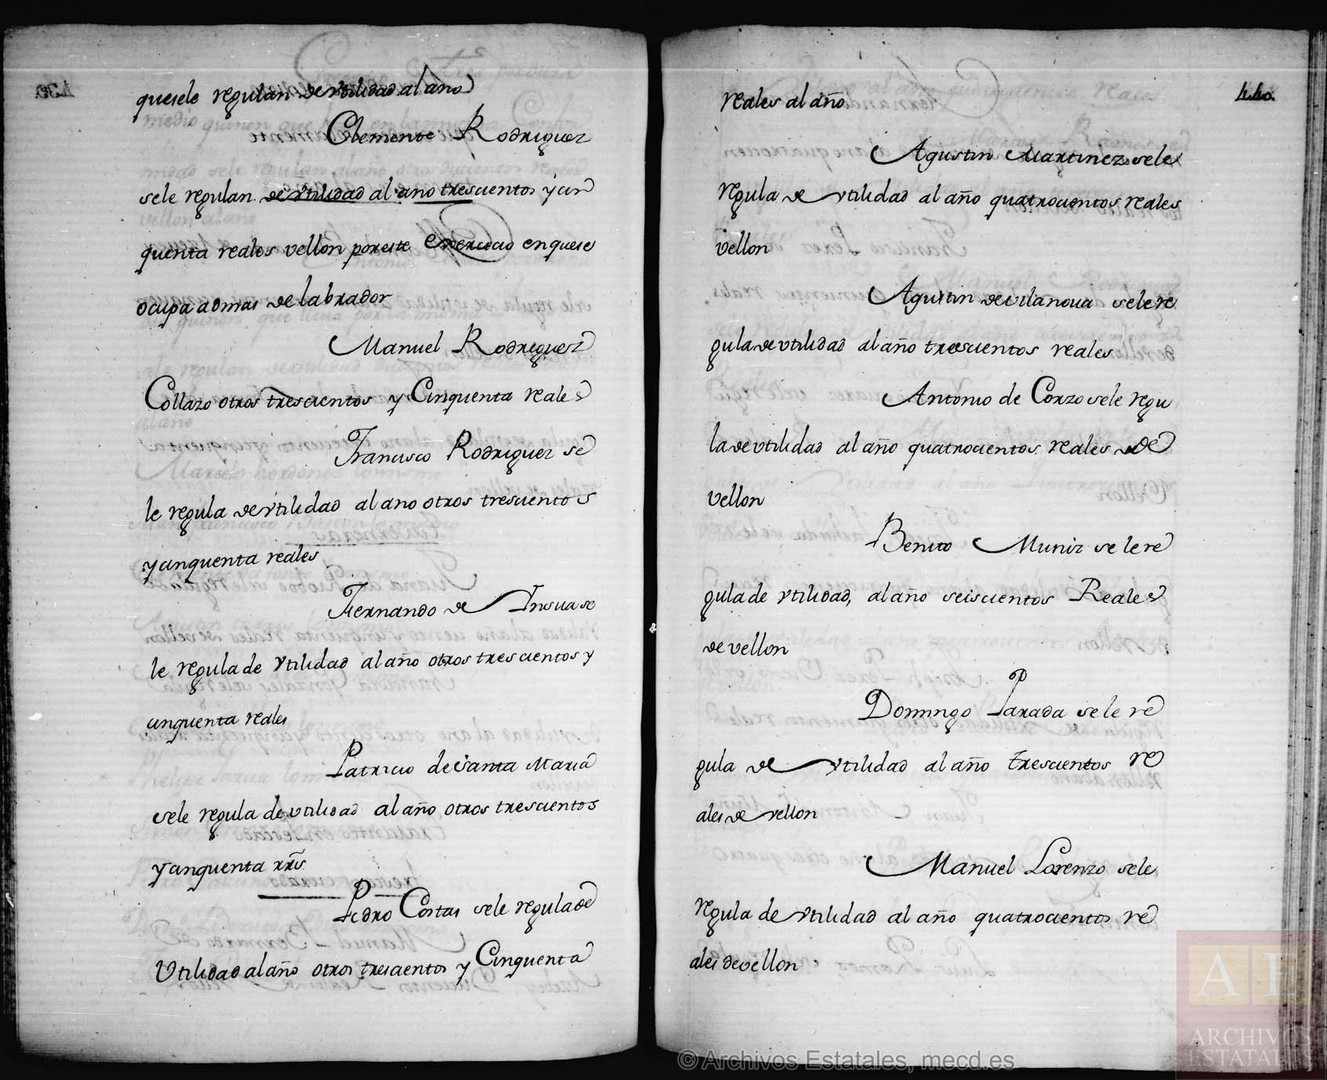 quesele regulan de vtilidad al año
Clemente Rodriguez
sele regulan de vtilidad al año trescientos y cin
quenta reales vellon por este exercicio en quese
ocupa ademas de labrador
Manuel Rodriguez
Collazo otros trescientos y Cinquenta reales
Francisco Rodriguez se
le regula de vtilidad al año otros trescientos
y cinquenta reales
Fernando de Insua se
le regula de vtilidad al año otros trescientos y
cinquenta reales
Patricio de Santa Maria
sele regula de vtilidad al año otros trescientos
y cinquenta rrs
Pedro Costas sele regula de
Utilidad al año otros trescientos y Cinquenta
440.
reales al año
Agustin Martinez sele
regula de vtilidad al año quatrocientos reales
vellon
Agustin de vilanoua sele re
gula de vtilidad al año trescientos reales
Antonio de Corzo sele regu
la de vtilidad al año quatrocientos reales de
vellon
Benito Muñiz se le re
gula de vtilidad, al año seiscientos Reales
de vellon
Domingo Parada se le re
gula de vtilidad al año trescientos re
ales de vellon
Manuel Lorenzo sele
regula de vtilidad al año quatrocientos re
ales de vellon
AE
ARCHIVOS
ESTATALES
© Archivos Estatales, mecd.es